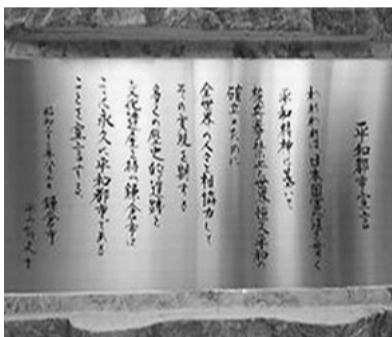 平和都市宣言
われわれは日本国憲法を貫く
平和精神に基いて
核兵器禁止と世界恒久平和の
確立のために
全世界の人々と相協力して
その実現を期する
多くの歴史的遺跡と
文化遺産を持つ鎌倉市は
ここに永久に平和都市である
ことを宣言する
昭和三十三年八月十日 鎌倉市